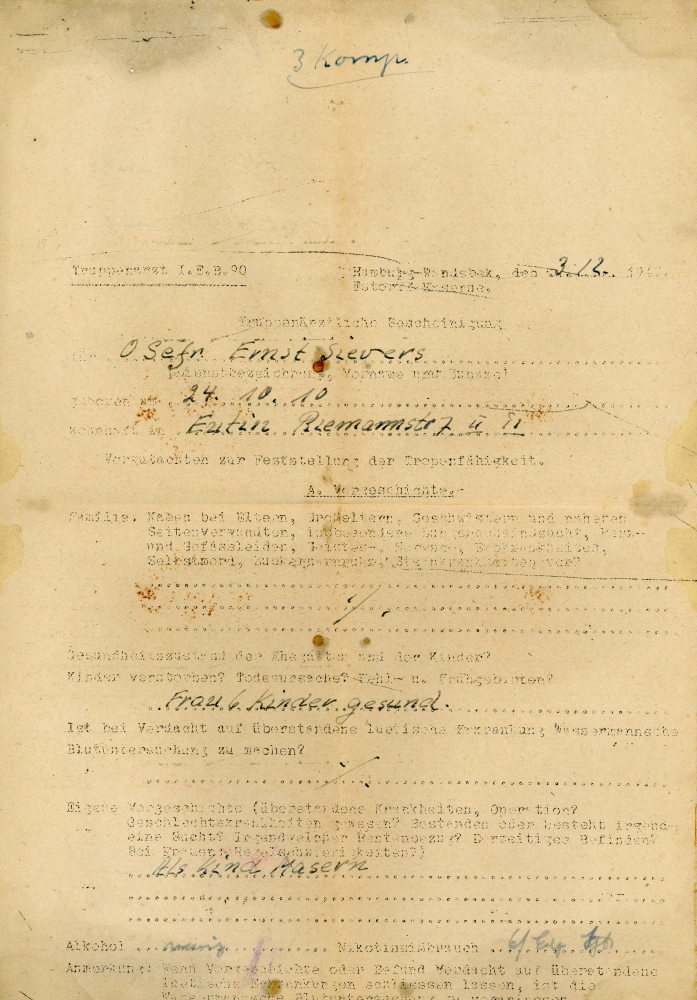 3 Komp.
Truppenarzt I.E.B.90
Hamburg-Wandsbek, den 3.12. 194
Estorff Kaserne.
Truppenärztliche Bescheinigung
O Gefr. Ernst Sievers
(Dienstbezeichnung, Vorname und Zuname)
geboren am 24. 10. 10
wohnhaft in Eutin Riemannstr 7
Vorgutachten zur Feststellung der Tropenfähigkeit.
A. Vorgeschichte.
Familie. Kamen bei Eltern, Großeltern, Geschwistern und näheren
Seitenverwandten, insbesondere Lungenschwindsucht,
und Gefässleider, Geistes-, Nerven-,
Selbstmord, Zuckerharnruhr, vor?
Gesundheitszustand der Ehegatten und der Kinder?
Kinder verstorben? Todesursache? Fehl- u. Frühgeburten?
Frau 6 Kinder gesund.
Ist bei Verdacht auf überstandene luetische Erkrankung Wassermannsche
Blutuntersuchung zu machen?
Eigene Vorgeschichte (überstandene Krankheiten, Operation?
Geschlechtskrankheiten gewesen? Bestanden oder besteht irgend-
eine Sucht? Irgendwelcher Rentenbezug? Derzeitiges Befinden?
Bei Frauen: Regelschwierigkeiten?)
Als Kind Masern
Alkohol wenig Nikotinmißbrauch
Anmerkung: Wenn Vorgeschichte oder Befund Verdacht auf überstandene
luetische Erkrankungen schliessen lassen, ist die
Wassermannsche Blutuntersuchung